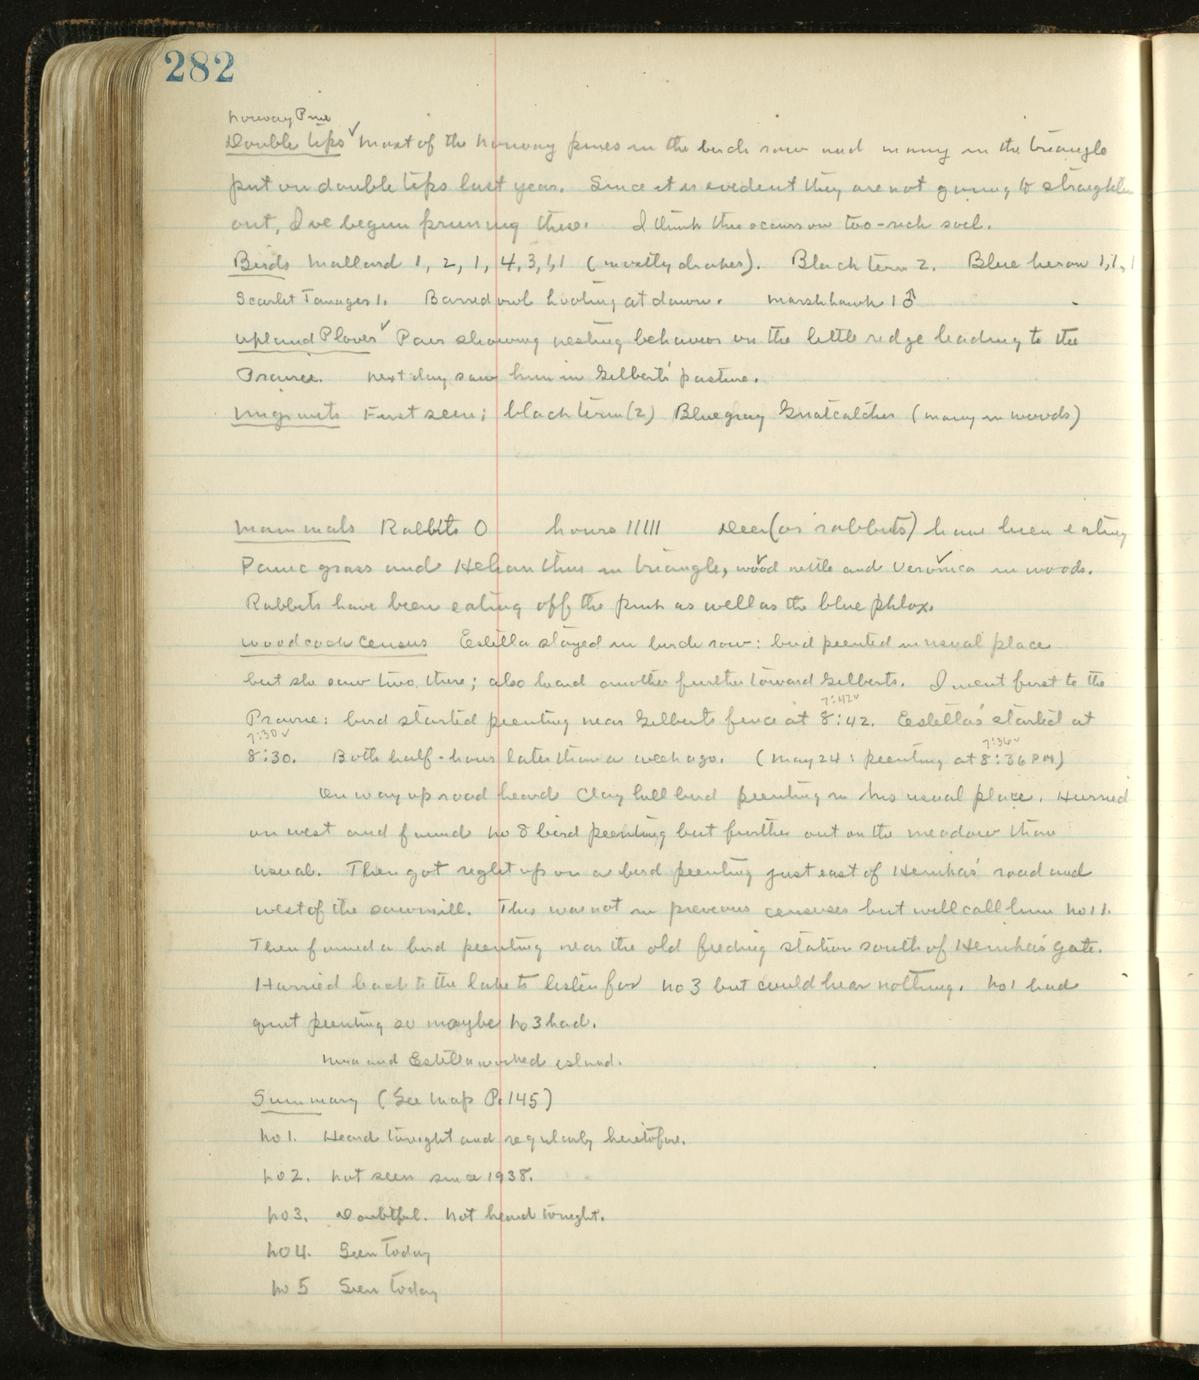 282
Norway Pine
Double tips ✓ Most of the Norway pines in the birch row and many in the triangle
put on double tips last year. Since it is evident they are not going to straighten
out, I've begun pruning these. I think this occurs on too-rich soil.
Birds Mallard 1, 2, 1, 4, 3, 1, 1 (mostly drakes). Black tern 2. Blue heron 1, 1, 1
Scarlet Tanager 1. Barred owl hooting at dawn. Marsh hawk 1 ♂
Upland Plover ✓ Pair showing nesting behavior on the little ridge leading to the
Prairie. Next day saw him in Gilbert's pasture.
Migrants First seen: black tern (2) Bluegray Gnatcatcher (many in woods)
Mammals Rabbits 0 hours 11111 Deer (or rabbits) have been eating
Panic grass and Helianthus in triangle, wood nettle and Veronica in woods.
Rabbits have been eating off the pink as well as the blue phlox.
Woodcock Census Estella stayed in birch row: bird peented in usual place
but she saw two there; also heard another further toward Gilberts. I went first to the
7:42 ✓
Prairie: bird started peenting near Gilberts fence at 8:42. Estella's started at
7:30 ✓ 7:36 ✓
8:30. Both half-hour later than a week ago. (May 24: peenting at 8:36 PM)
On way up road heard Clay hill bird peenting in his usual place. Hurried
on west and found No 8 bird peenting but further out on the meadow than
usual. Then got right up on a bird peenting just east of Hemkas' road and
west of the sawmill. This was not in previous censuses but will call him No 11.
Then found a bird peenting near the old feeding station south of Hemkas' gate.
Hurried back to the lake to listen for No 3 but could hear nothing. No 1 had
quit peenting so maybe No 3 had.
Nina and Estella worked island.
Summary (See Map P. 145)
No 1. Heard tonight and regularly heretofore.
No 2. Not seen since 1938.
No 3. Doubtful. Not heard tonight.
No 4. Seen today
No 5 Seen today